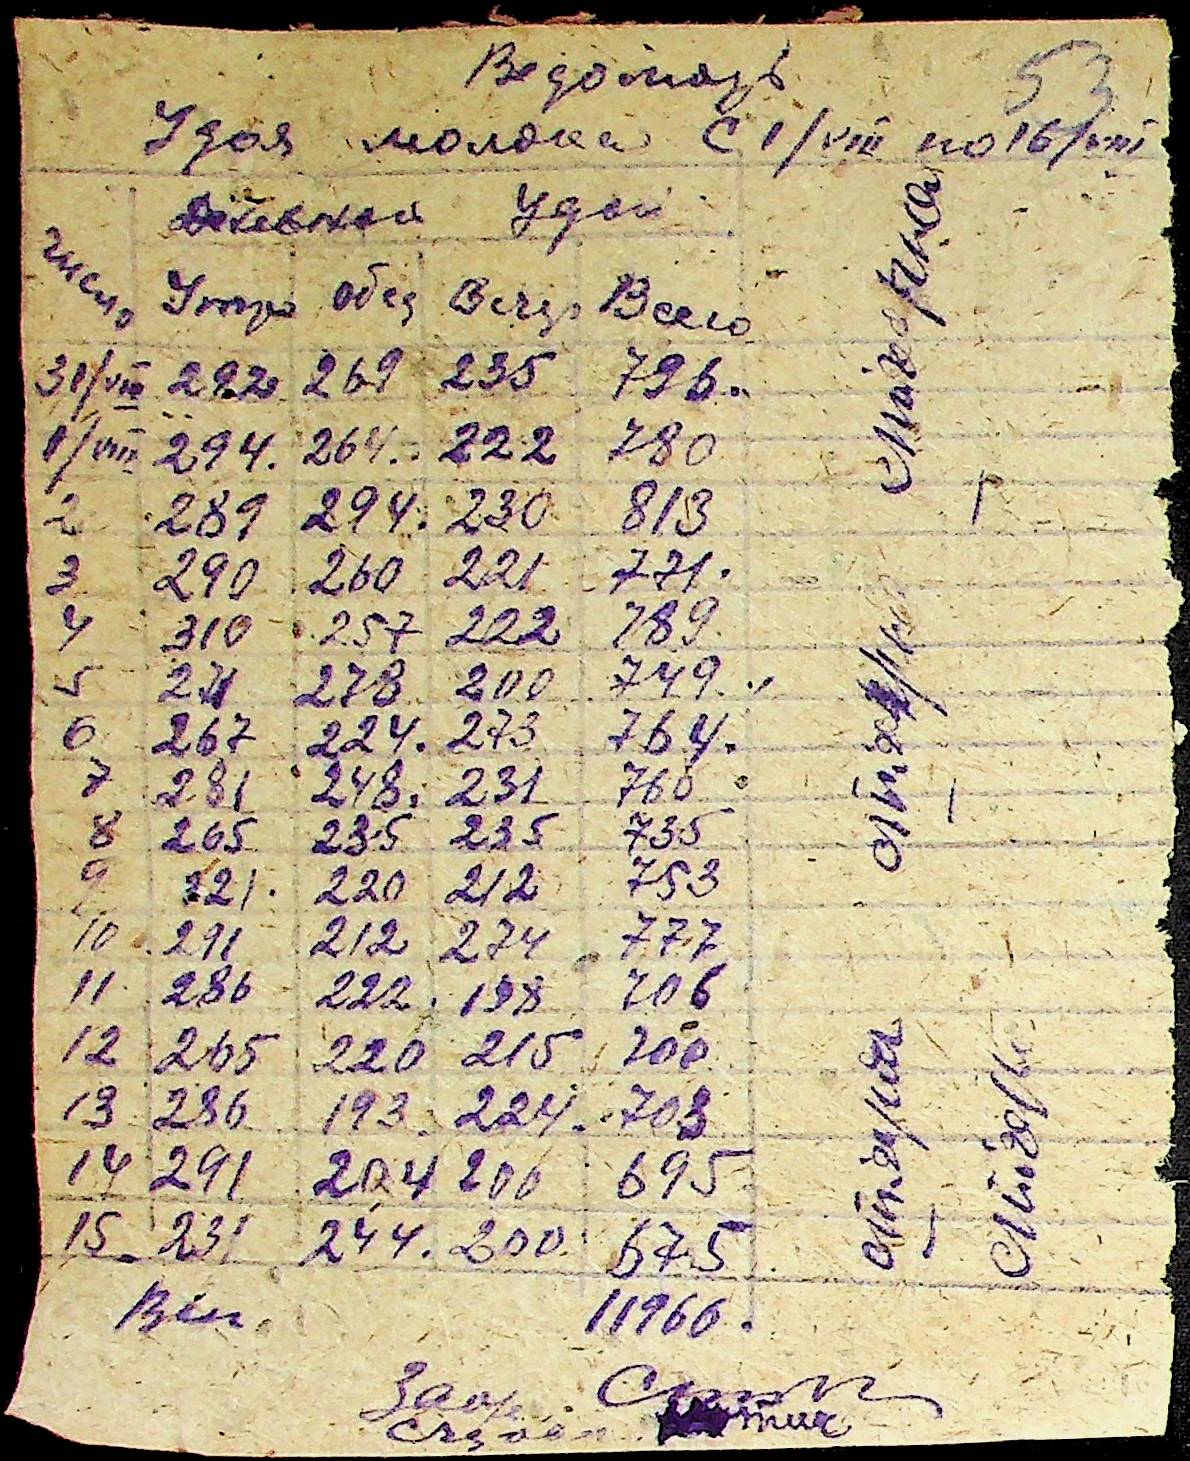 53
Ведомозь
Удоя молока С 1/VIII по 16/VIII
Дневной Удой
Число Утро Обед Вечер Всего
31/VIII 292 269 235 796.
1/VIII 294. 264. 222 780
2 289 294. 230 813
3 290 260 221 771.
4 310 257 222 789
5 271 278 200 749.
6 267 224. 273 764.
7 281 248. 231 760
8 265 235 235 735
9 321. 220 212 753
10 291 212 274 777
11 286 222. 198 706
12 265 220 215 700
13 286 193. 224. 703
14 291 204 200 695
15. 231 244. 200 675
11966.